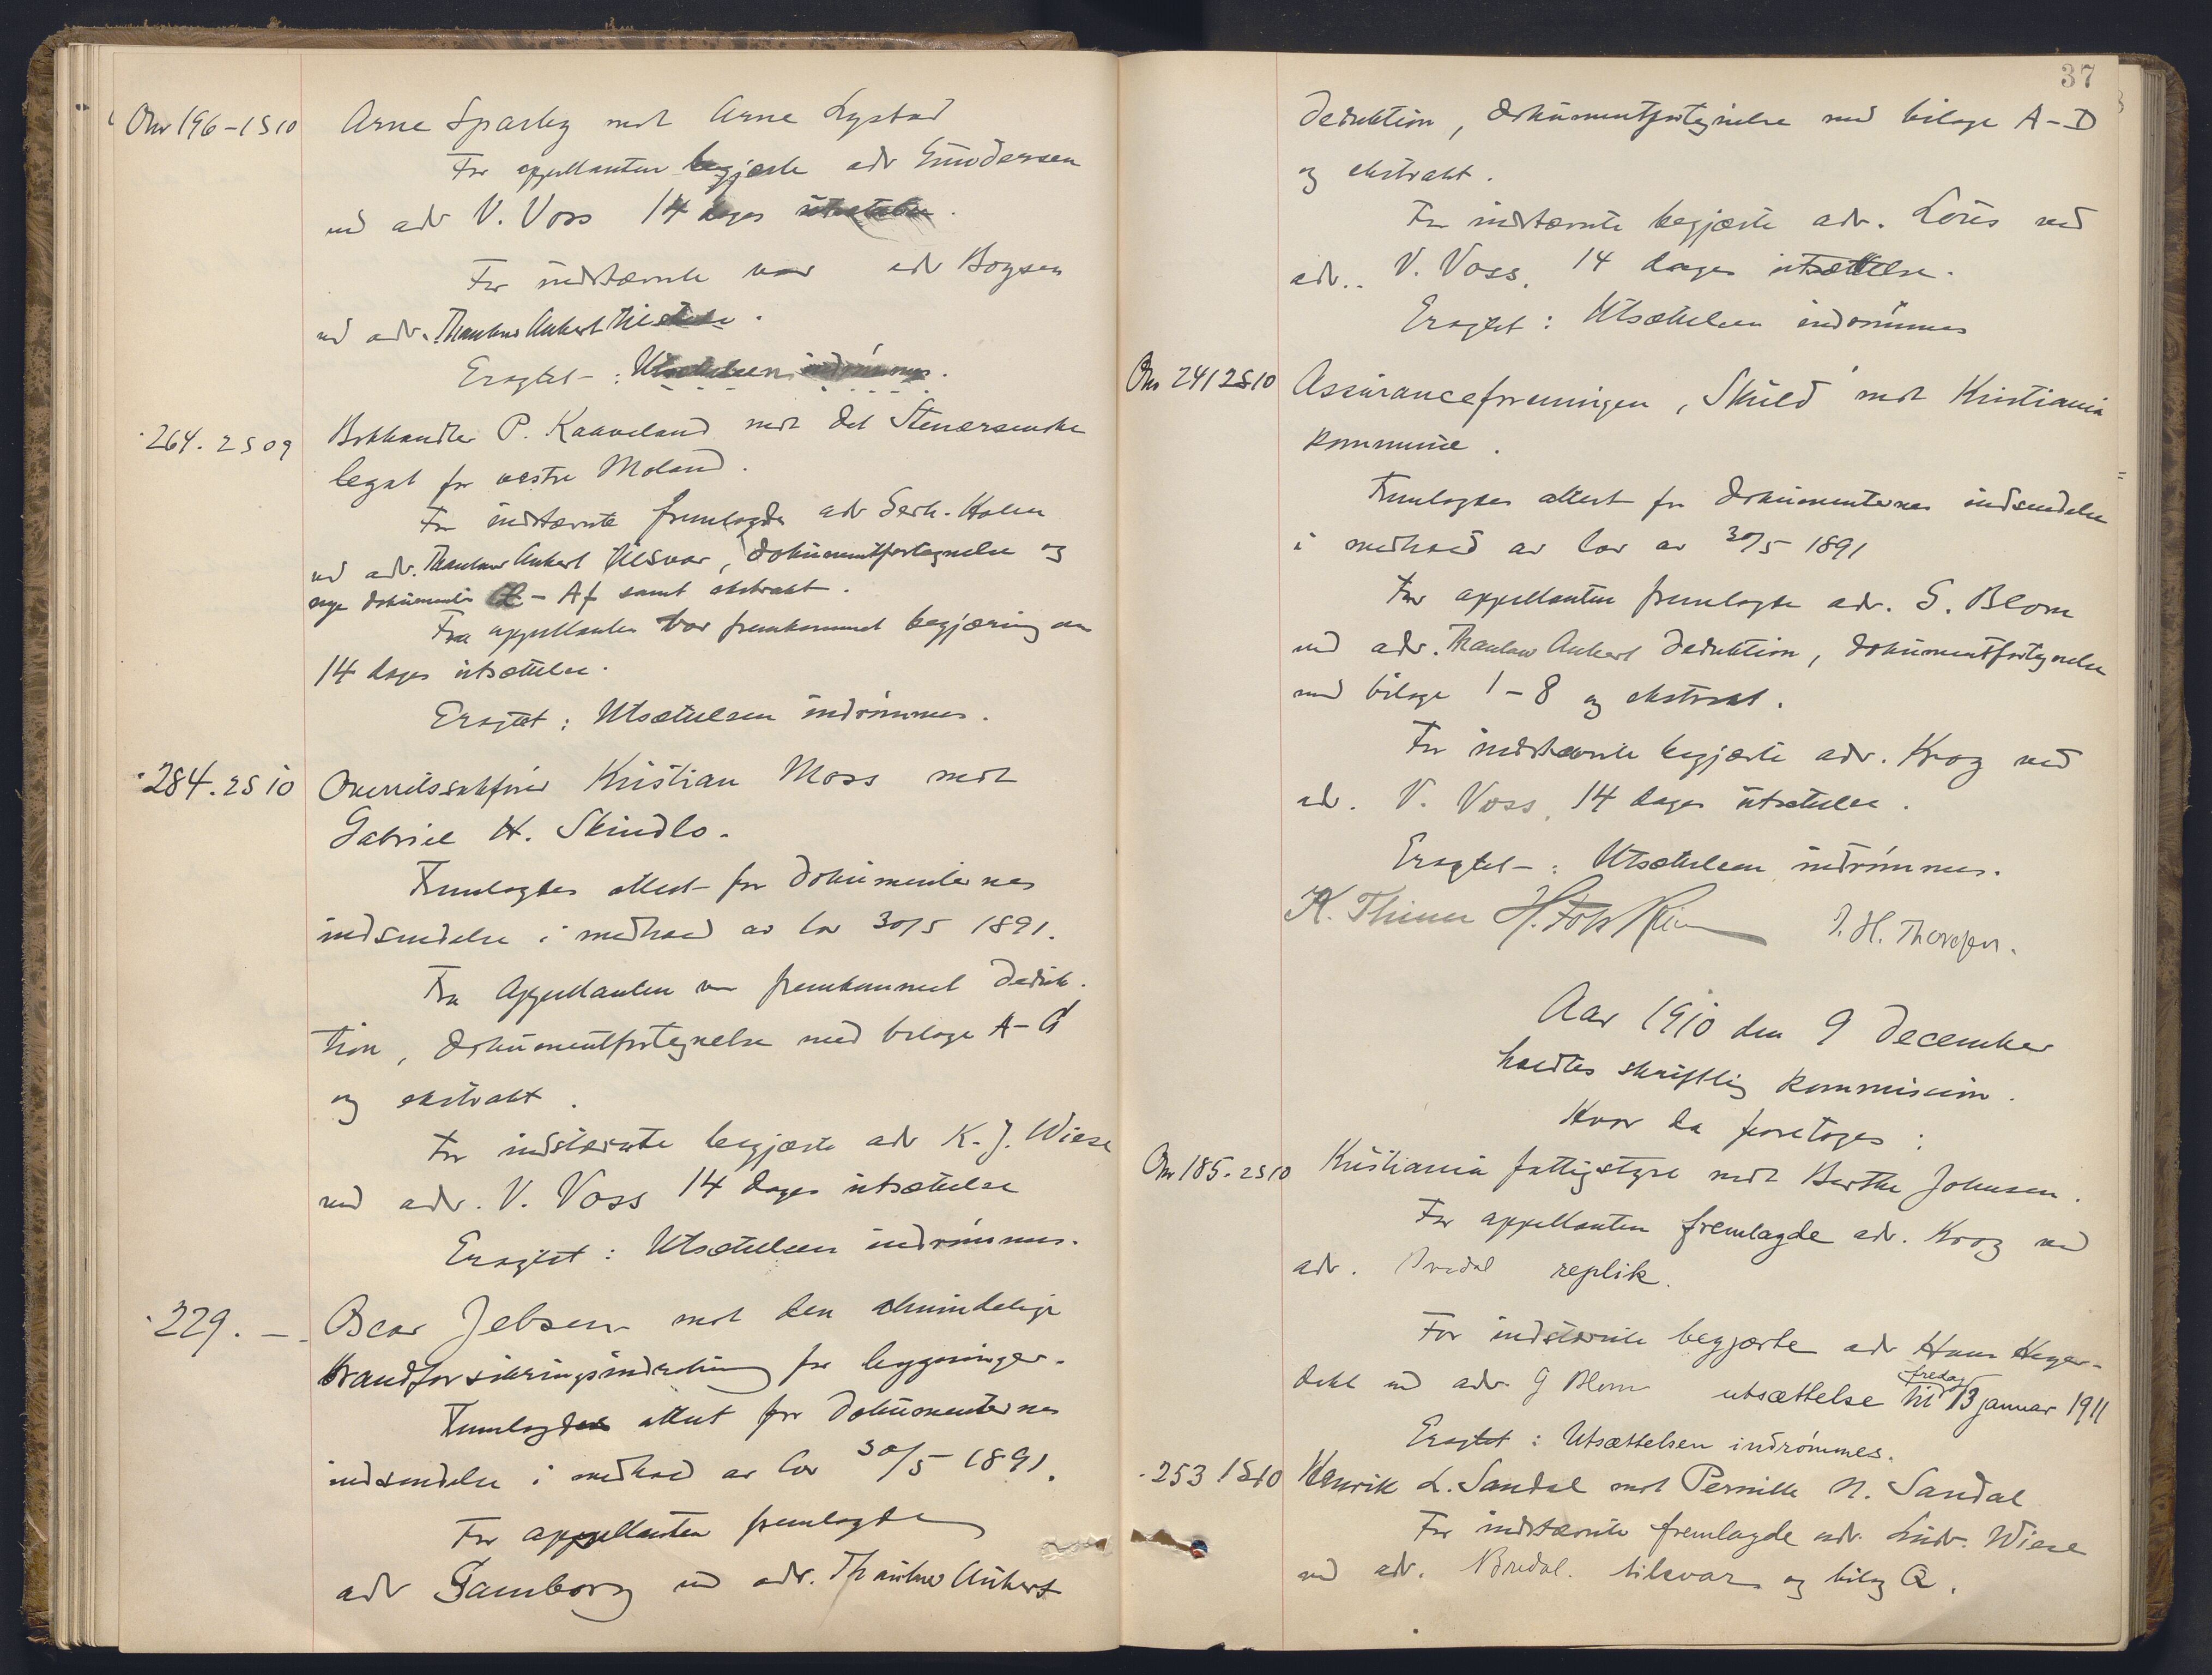 Onr 196-1 S 10
Arne Sparby mot Arne Lystad
For appellanten begjærte adv Gundersen
ved adv V. Voss 14 dages utsættelse.
For indstævnte var adv Boysen
ved adv. Thaulow Ankert tilstede.
Eragtet: Utsættelsen indrømmes.
264. 2 S 09
Bokhandler P. Kaaveland mot det Stenersenske
legat for vestre Moland.
For indstævnte fremlagdes adv Serh. Holm
ved adv. Thaulow Ankert tilsvar, dokumentfortegnelse og
nye dokumenter - Af samt ekstrakt.
Fra appellanten var fremkommet begjæring om
14 dages utsættelse.
Eragtet: Utsættelsen indrømmes.
284. 2 S 10
Overretssakfører Kristian Moss mot
Gabriel H. Skindlo.
Fremlagdes attest for dokumenternes
indsendelse i medhold av lov 30/5 1891.
Fra Appellanten var fremkommet deduk-
tion, dokumentfortegnelse med bilage A-G
og ekstrakt.
For indstævnte begjærte adv K. J. Wiese
ved adv. V. Voss 14 dages utsættelse
Eragtet: Utsættelsen indrømmes.
229. — -
Oscar Jebsen mot den almindelige
Brandforsikringsindretning for bygninger.
Fremlagdes attest for dokumenternes
indsendelse i medhold av lov 30/5 1891.
For appellanten fremlagde
adv Gamborg ved adv. Thaulow Ankert
37
deduktion, dokumentfortegnelse med bilage A-D
og ekstrakt.
For indstævnte begjærte adv. Lous ved
adv.. V. Voss. 14 dages utsættelse.
Eragtet: Utsættelsen indrømmes
Onr 241 2 S 10
Assuranceforeningen „Skuld" mot Kristiania
kommune.
Fremlagdes attest for dokumenternes indsendelse
i medhold av lov av 30/5 1891
For appellanten fremlagde adv. G. Blom
ved adv. Thaulow Ankert deduktion, dokumentfortegnelse
med bilage 1-8 og ekstrakt.
For indstævnte begjærte adv. Krog ved
adv. V. Voss. 14 dages utsættelse.
Eragtet: Utsættelsen indrømmes.
K. Thinn H. J. H. Thoresen.
Aar 1910 den 9 december
holdtes skriftlig kommission.
Hvor da foretoges:
Onr 185. 2 S 10
Kristiania fattigstyre mot Berthe Johnsen.
For appellanten fremlagde adv. Krog ved
adv. Bredal replik.
For indstævnte begjærte adv Hans Heyer-
dahl ved adv. G Blom utsættelse til fredag 13 januar 1911
Eragtet: Utsættelsen indrømmes.
253 1 S 10
Henrik L. Sandal mot Pernille N. Sandal
For indstævnte fremlagde adv. Ludv. Wiese
ved adv. Bredal. tilsvar og bilag Q.